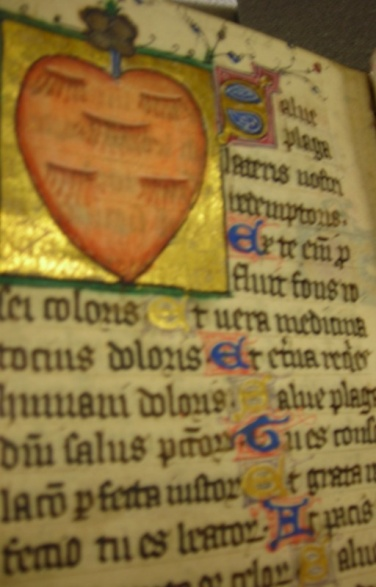 Salue
plaga
lateris nostri
redemptoris.
Ex te em̄ p
fluit fons ro
sei coloris Et uera medicina
tocius doloris Et etiua
humani doloris. Salue plaga
dn̄i salus pctor Tu es
lacō pfecta iustor Et grata
fectio tu es leator Ac pacis
Salue